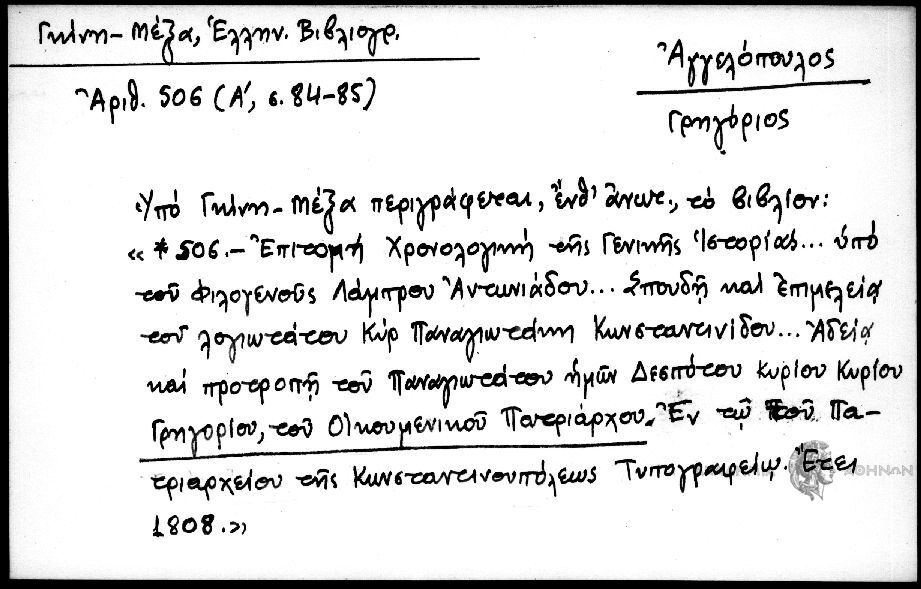 Γκίνη-Μέξα, Ἑλλην. Βιβλιογρ.
Ἀριθ. 506 (Α', σ. 84-85)
Ἀγγελόπουλος
Γρηγόριος
Ὑπό Γκίνη-Μέξα περιγράφεται, ἔνθ' ἄνωτ., τό βιβλίον:
« * 506.- Ἐπιτομή Χρονολογική τῆς Γενικῆς Ἱστορίας... ὑπό
τοῦ Φιλογενοῦς Λάμπρου Ἀντωνιάδου... Σπουδῇ καί Ἐπιμελείᾳ
τοῦ λογιωτάτου Κύρ Παναγιωτάκη Κωνσταντινίδου... Ἀδείᾳ
καί προτροπῇ τοῦ Παναγιωτάτου ἡμῶν Δεσπότου Κυρίου Κυρίου
Γρηγορίου, τοῦ Οἰκουμενικοῦ Πατριάρχου. Ἐν τῷ τοῦ Πα-
τριαρχείου τῆς Κωνσταντινουπόλεως Τυπογραφείῳ. Ἔτει
1808.»
ΑΘΗΝΩΝ